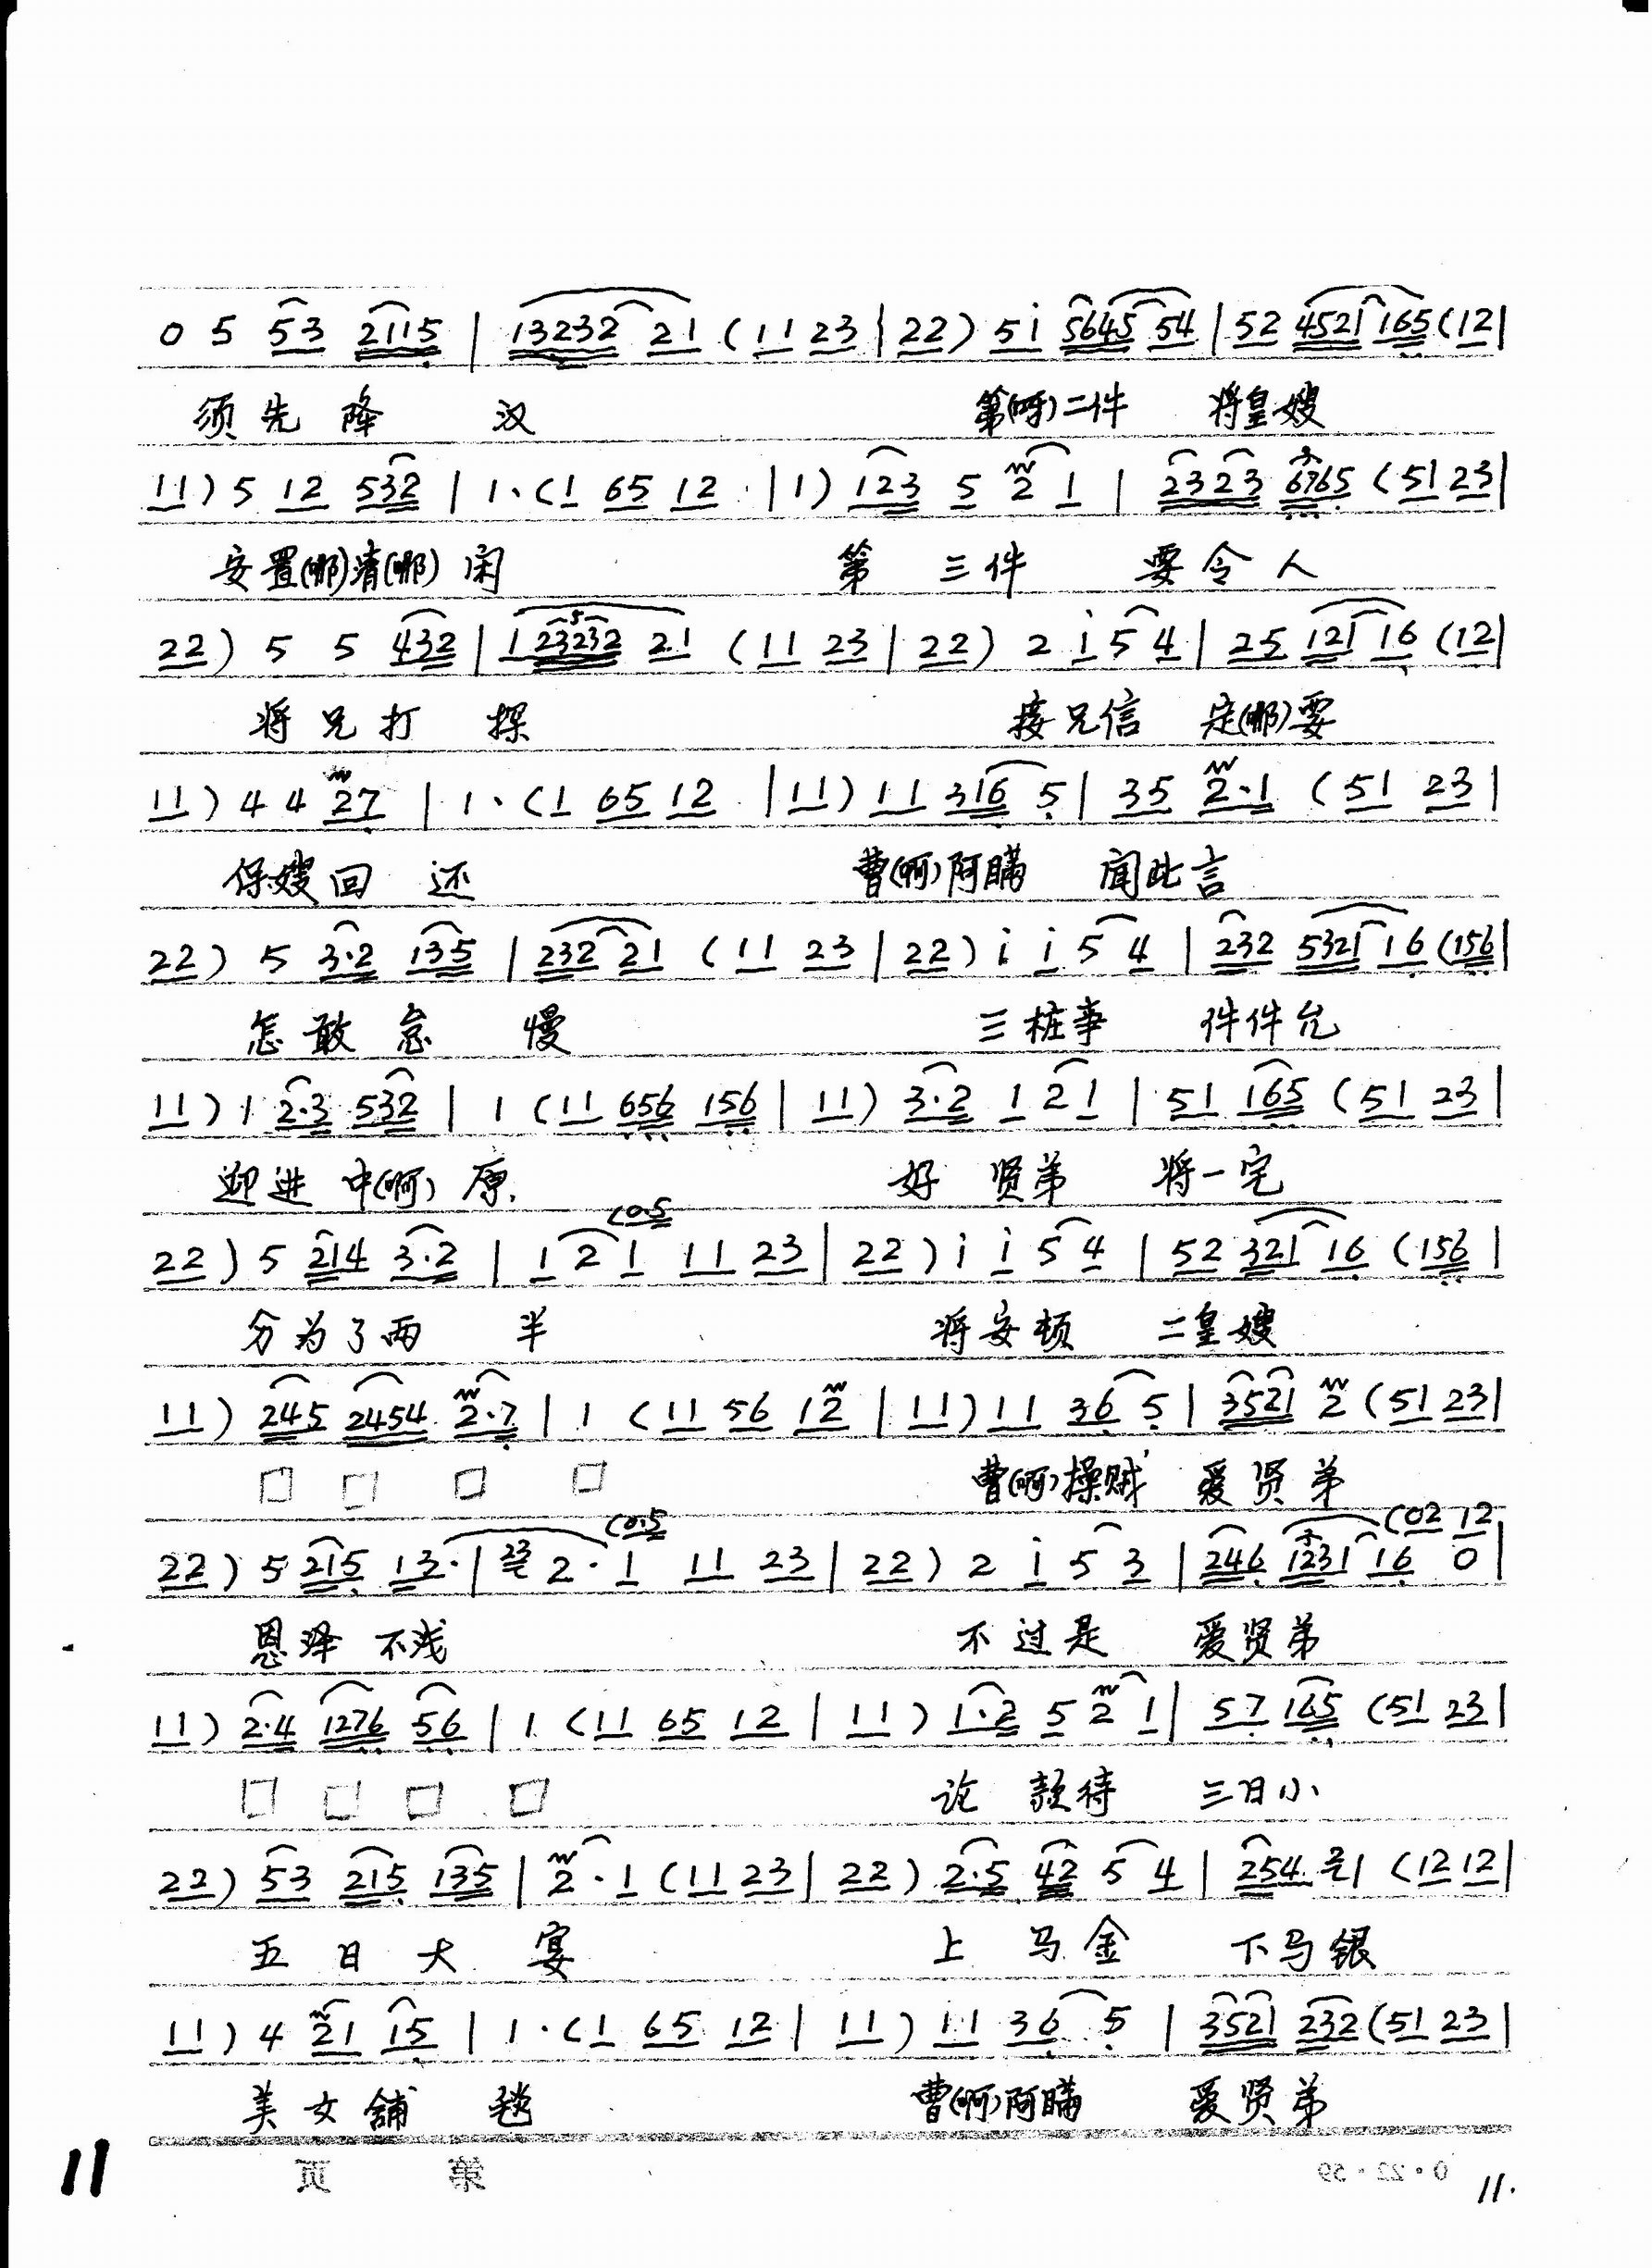 0 5 53 2115 | 13232 21 (11 23 | 22) 51 5645 54 | 52 4521 165 (12 |
须先降 汉 第(呀)二件 将皇嫂
11) 5 12 532 | 1·(1 65 12 | 1) 123 5 2 1 | 2323 6765 (51 23 |
安置(哪)清(哪)闲 第 三件 要令人
22) 5 5 432 | 1 23232 21 (11 23 | 22) 2 i 5 4 | 25 121 16 (12 |
将兄打 探 接兄信 定(哪)要
11) 4 4 27 | 1·(1 65 12 | 11) 11 316 5 | 35 2·1 (51 23 |
保嫂回 还 曹(啊)阿瞒 闻此言
22) 5 3·2 135 | 232 21 (11 23 | 22) i i 5 4 | 232 5321 16 (156 |
怎敢怠 慢 三桩事 件件允
11) 1 2·3 532 | 1 (11 656 156 | 11) 3·2 1 2 1 | 51 165 (51 23 |
迎进 中(啊) 原. 好 贤弟 将一宅
(0·5
22) 5 214 3·2 | 1 2 1 11 23 | 22) i i 5 4 | 52 321 16 (156 |
分为了两 半 将安顿 二皇嫂
11) 245 2454 2·7 | 1 (11 56 12 | 11) 11 36 5 | 3521 2 (51 23 |
□ □ □ □ 曹(啊)操贼 爱贤弟
(0·5 (02 12
22) 5 215 13· | 23 2·1 11 23 | 22) 2 i 5 3 | 246 1231 16 0 |
恩泽 不浅 不过是 爱贤弟
11) 2·4 1276 56 | 1 (11 65 12 | 11) 1·2 5 2 1 | 57 165 (51 23 |
□ □ □ □ 论 款待 三日小
22) 53 215 135 | 2·1 (11 23 | 22) 2·5 42 5 4 | 254 21 (12 12 |
五日大 宴 上马金 下马银
11) 4 21 15 | 1·(1 65 12 | 11) 11 36 5 | 3521 232 (51 23 |
美女舖 毯 曹(啊)阿瞒 爱贤弟
第 页
0·22·59
11
11.